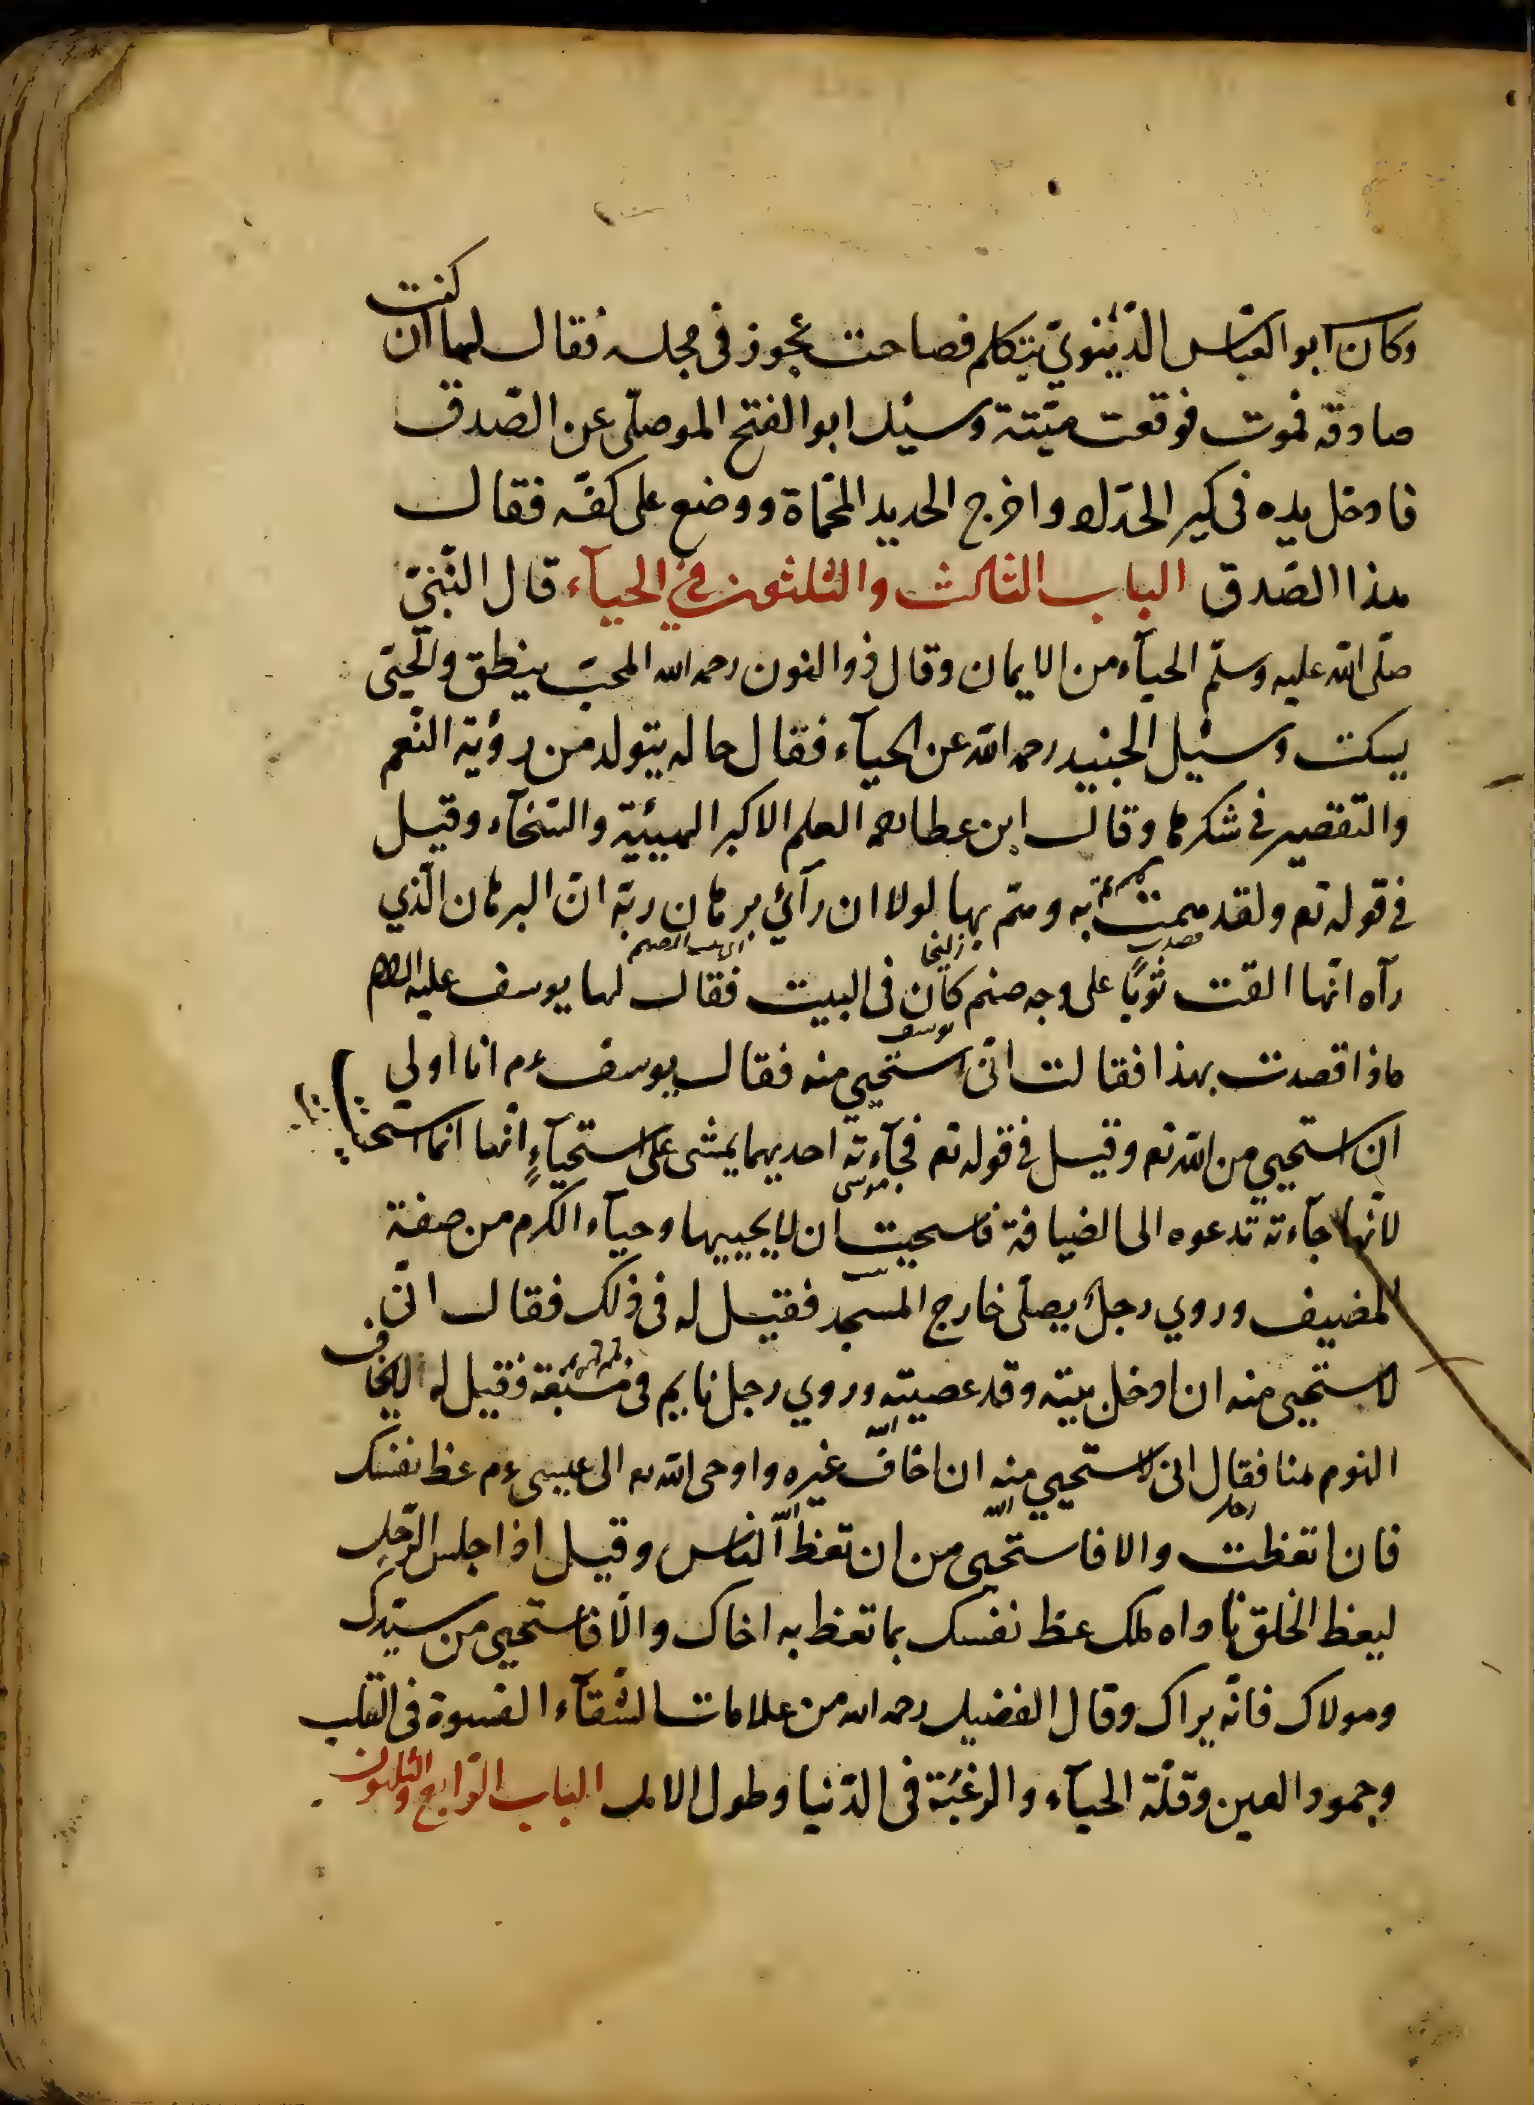 وكان ابو العباس الدّينوريّ يتكلم فصاحت عجوز فى مجلسه فقال لها ان كنت
صادقة فموت فوقعت ميّتة وسئيل ابو الفتح الموصلّى عن الصّدق
فادخل يده فى كير الحدّاد واخرج الحديد المحّماة ووضع على كفّه فقال
هذا الصّدق الباب الثالث والثلثون فى الحيآء قال النّبىّ
صلّى الله عليه وسلّم الحيآء من الايمان وقال ذو النون رحمه الله المحبّ ينطق والحيّى
يسكت وسئيل الجنيد رحمه الله عن الحيآء فقال حاله يتولد من رؤية النّعم
والتّقصير فى شكرها وقال ابن عطا رحمه العلم الاكبر الهيبة والسّخآء وقيل
فى قوله تع ولقد همت به وهمّ بها لولا ان رآئ برهان ربّه انّ البرهان الّذي
رآه انّها القت ثوبًا على وجه صنم كان فى البيت فقال لها يوسف عليه السلام
زليخا
ماذا قصدت بهذا فقالت انّى استحيى منه فقال يوسف عم انا اولي
يوسف
ان استحيى من الله تع وقيل فى قوله تع فجآءته احديهما يمشى على استحيآءٍ انّها انّما استحيا
لانّها جآءته تدعوه الى الضيافة فاسحيت ان لا يجيبها وحيآء الكرم من صفة
موسى
المضيف وروي رجلٌ يصلّى خارج المسجد فقيل له فى ذلك فقال انّى
لاستحيى منه ان ادخل بيته وقد عصيته وروي رجل نايم فى مسبعة فقيل له لا يخاف
النوم هنا فقال انى لاستحيى منه ان اخاف غيره واوحى الله تع الى عيسى عم عظ نفسك
الله
فان اتعظت والا فاستحيى من ان تعظ الناس وقيل اذا جلس الرّجل
الله
ليعظ الخلق ناداه ملك عظ نفسك بما تعظ به اخاك والّا فاستحيى من سيّدك
ومولاك فانّه يراك وقال الفضيل رحمه الله من علامات الشّقآء القسوة فى القلب
وجمود العين وقلّة الحيآء والرغبة فى الدّنيا وطول الامل الباب الرّابع والثلثون